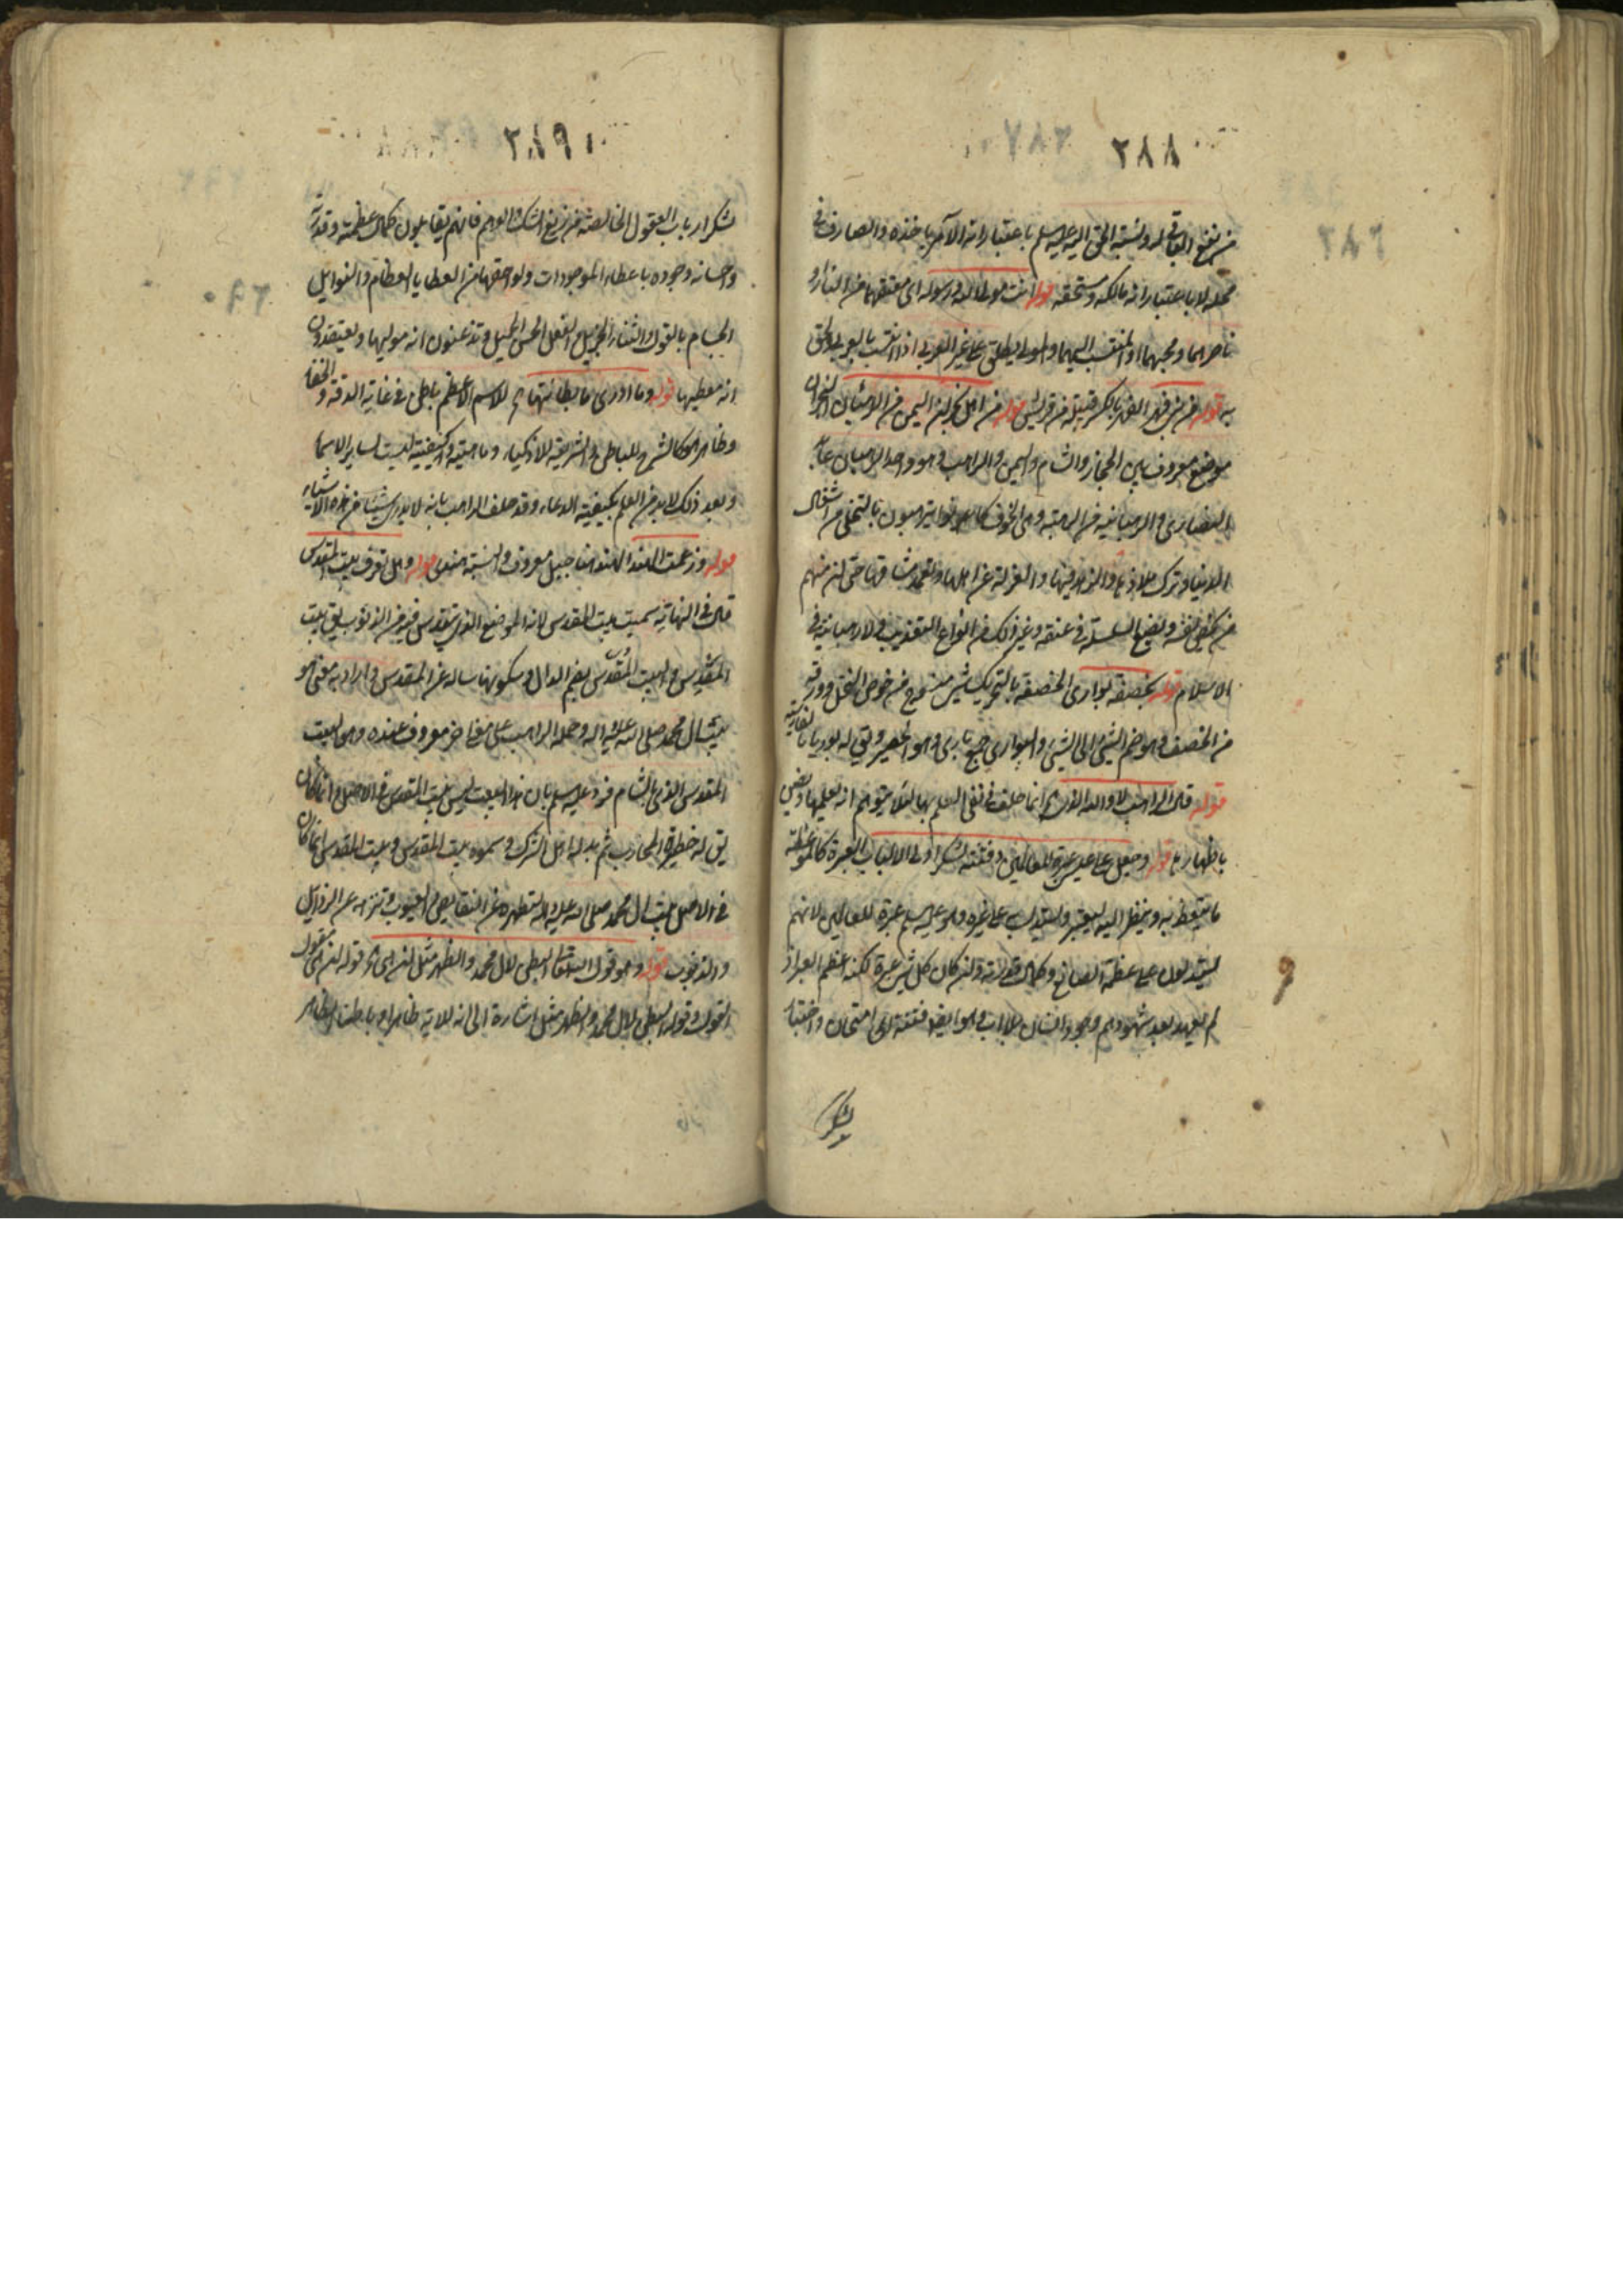 ٢٨٨
من نفع الباقي له ونسبة الحق اليه عليه السلم باعتبار انه الآمر باخذه والصارف في
محله لا باعتبار انه مالكه ومستحقه قوله انت مولى الله ورسوله اى معتقهما من النار و
ناصرهما ومحبهما او المنتسب اليهما والمولى يطلق على غير العربي اذا انتسب بالعربي ولحق
به قوله من بني فهر الفهر بالكسر قبيلة من قريش قوله من اهل نجران اليمن من الرهبان نجران
موضع معروف بين الحجاز والشام واليمن والراهب وهو واحد الرهبان عابد
النصارى والرهبانية من الرهبة وهى الخوف كانوا يترهبون بالتخلى من اشغال
الدنيا وترك ملاذها والزهد فيها والعزلة عن اهلها وتعمد مشاقها حتى ان منهم
من يخصى نفسه ويضع السلسلة في عنقه وغير ذلك من انواع التعذيب ولا رهبانية في
الاسلام قوله بخصفة بوارى الخصفة بالتحريك شىء منسوج من خوص النخل وورقه
من الخصف وهو ضم الشىء الى الشىء والبوارى جمع بارى وهو الحصير ويق له بوريا بالفارسية
قوله قال الراهب لا والله الذى اه انما حلف في نفى العلم بها لئلا يتوهم انه يعلمها ويضن
باظهارها قوله وجعل عيسى عبرة للعالمين وفتنة لشكر اولى الالباب العبرة كالموعظة
ما يتعظ به وينظر اليه ليعتبر ويستدل به على غيره وهو عليه السلم عبرة للعالمين لانهم
يستدلون على عظمة الصانع وكمال قدرته وان كان كل شىء عبرة لكنه اعظم العبر اذ
لم يعهد بعد شهودهم وجود انسان بلا اب وهو ايضا فتنة اى امتحان واختبار
لشكر
٢٨٩
لشكر ارباب العقول الخالصة من زيغ الشك والوهم فانهم يقابلون كمال عظمته وقدرته
واحسانه وجوده باعطاء الموجودات ولواحقها من العطايا العظام والنوايل
الجسام بالقول والثناء الجزيل والفعل الحسن الجميل ويذعنون انه موليها ويعتقدون
انه معطيها قوله وما ادرى ما بطائنها اه للاسم الاعظم باطن في غاية الدقة والخفاء
وظاهر هو كالشرح للباطن والشريعة للاذكياء وماهيته وكيفيته ليست لساير الاسما
وبعد ذلك لابد من العلم بكيفية الدعاء وقد حلف الراهب بانه لا يدرى شيئا من هذه الاشياء
قوله وزعمت الهند الهند هنا جبل معروف والنسبة هندى قوله وهل تعرف بيت المقدس
قال في النهاية سميت بيت المقدس لانه الموضع الذى يتقدس فيه من الذنوب يق بيت
المقدس والبيت المقدس بضم الدال وسكونها ساله عن المقدس واراد به معنى هو
بيت ال محمد صلى الله عليه واله وحمله الراهب على معنى اخر معروف عنده وهى البيت
المقدس الذى بالشام فرد عليه السلم بان هذا البيت ليس بيت المقدس في الاصل وانما كان
يق له حظيرة المحاريب ثم بدله اهل الشرك وسموه بيت المقدس وبيت المقدس انما كان
في الاصل بيت ال محمد صلى الله عليه واله لتطهره عن النقايص والعيوب وتنزهه عن الرذايل
والذنوب قوله وهو قول الله تعالى البطن لال محمد والظهر مثل ان هى اه قوله ان هى مقول
القول وقوله البطن لال محمد والظهر مثل اشارة الى انه للاية ظاهرا وباطنا الظاهر